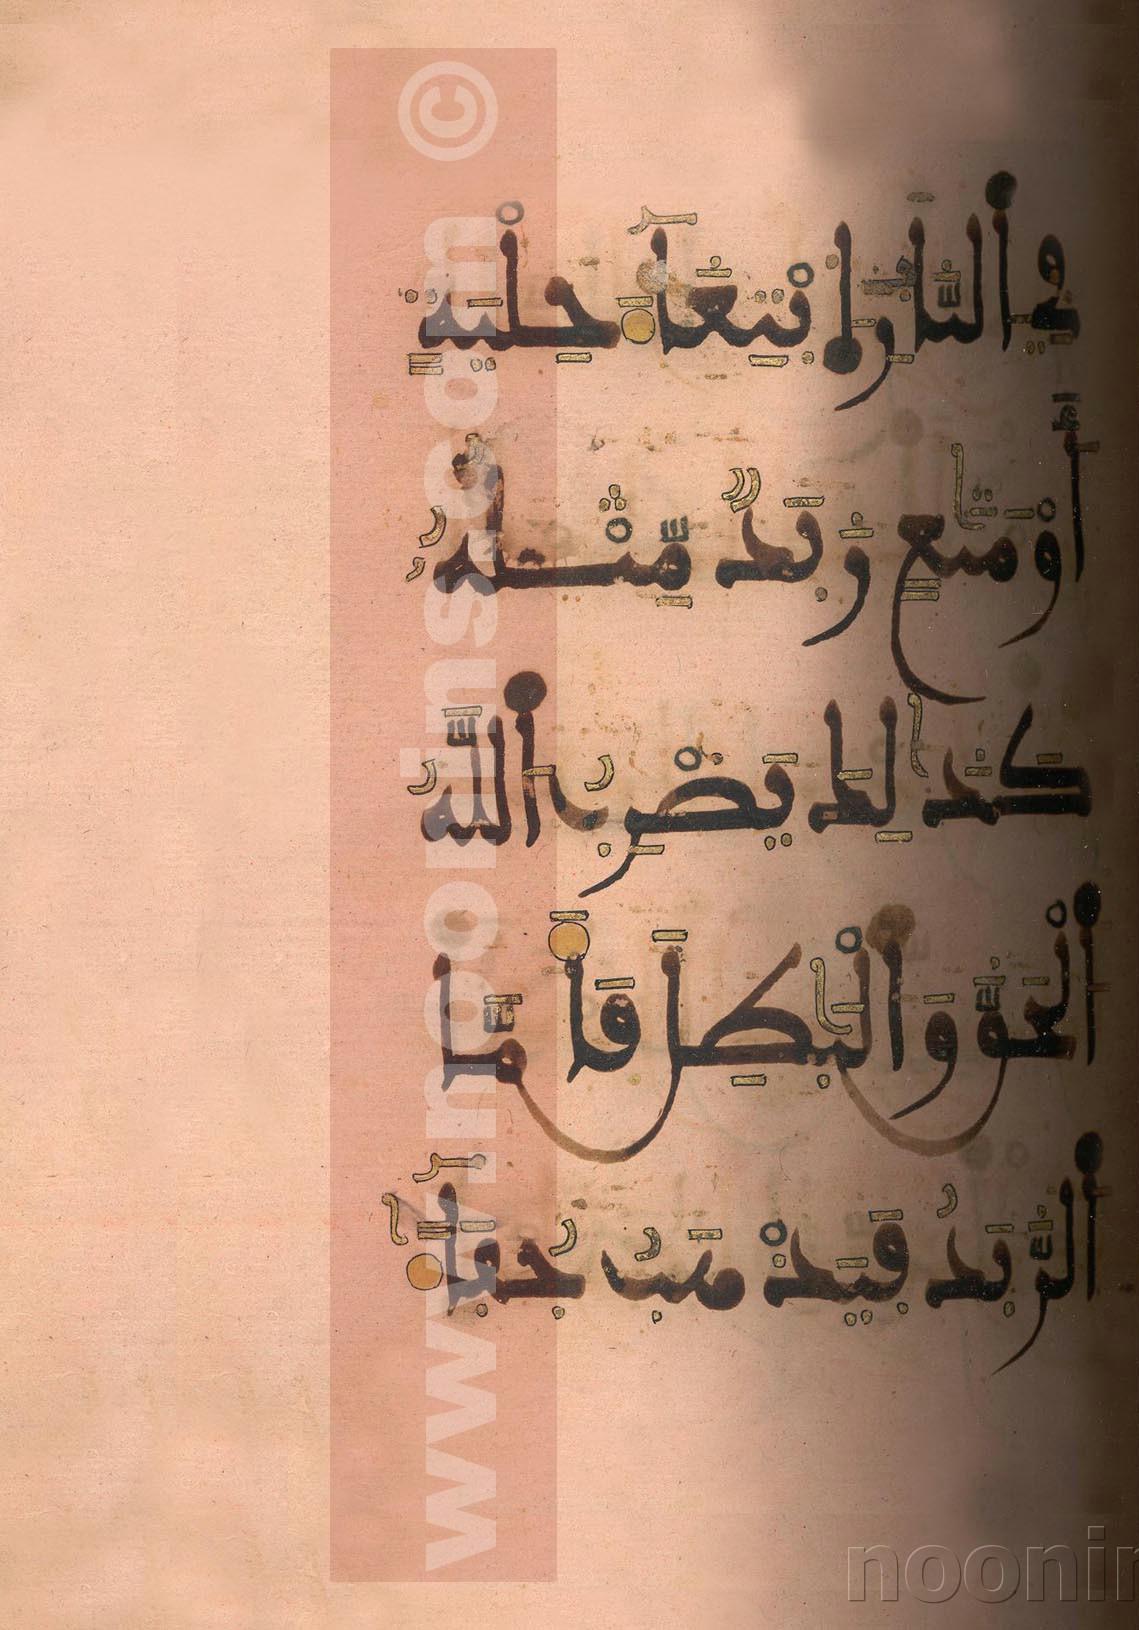 فِي اَ۬لنّ۪ارِ اِ۪بْتِغَآءَ حِلْيَةٍ
اَوْ مَتَٰعٖ زَبَدٞ مِّثْلُهُۥ
كَذَٰلِكَ يَضْرِبُ اُ۬للَّهُ
اُ۬لْحَقَّ وَالْبَٰطِلَ فَأَمَّا
اَ۬لزَّبَدُ فَيَذْهَبُ جُفَآءٗ
www.noonins.com ©
noonin